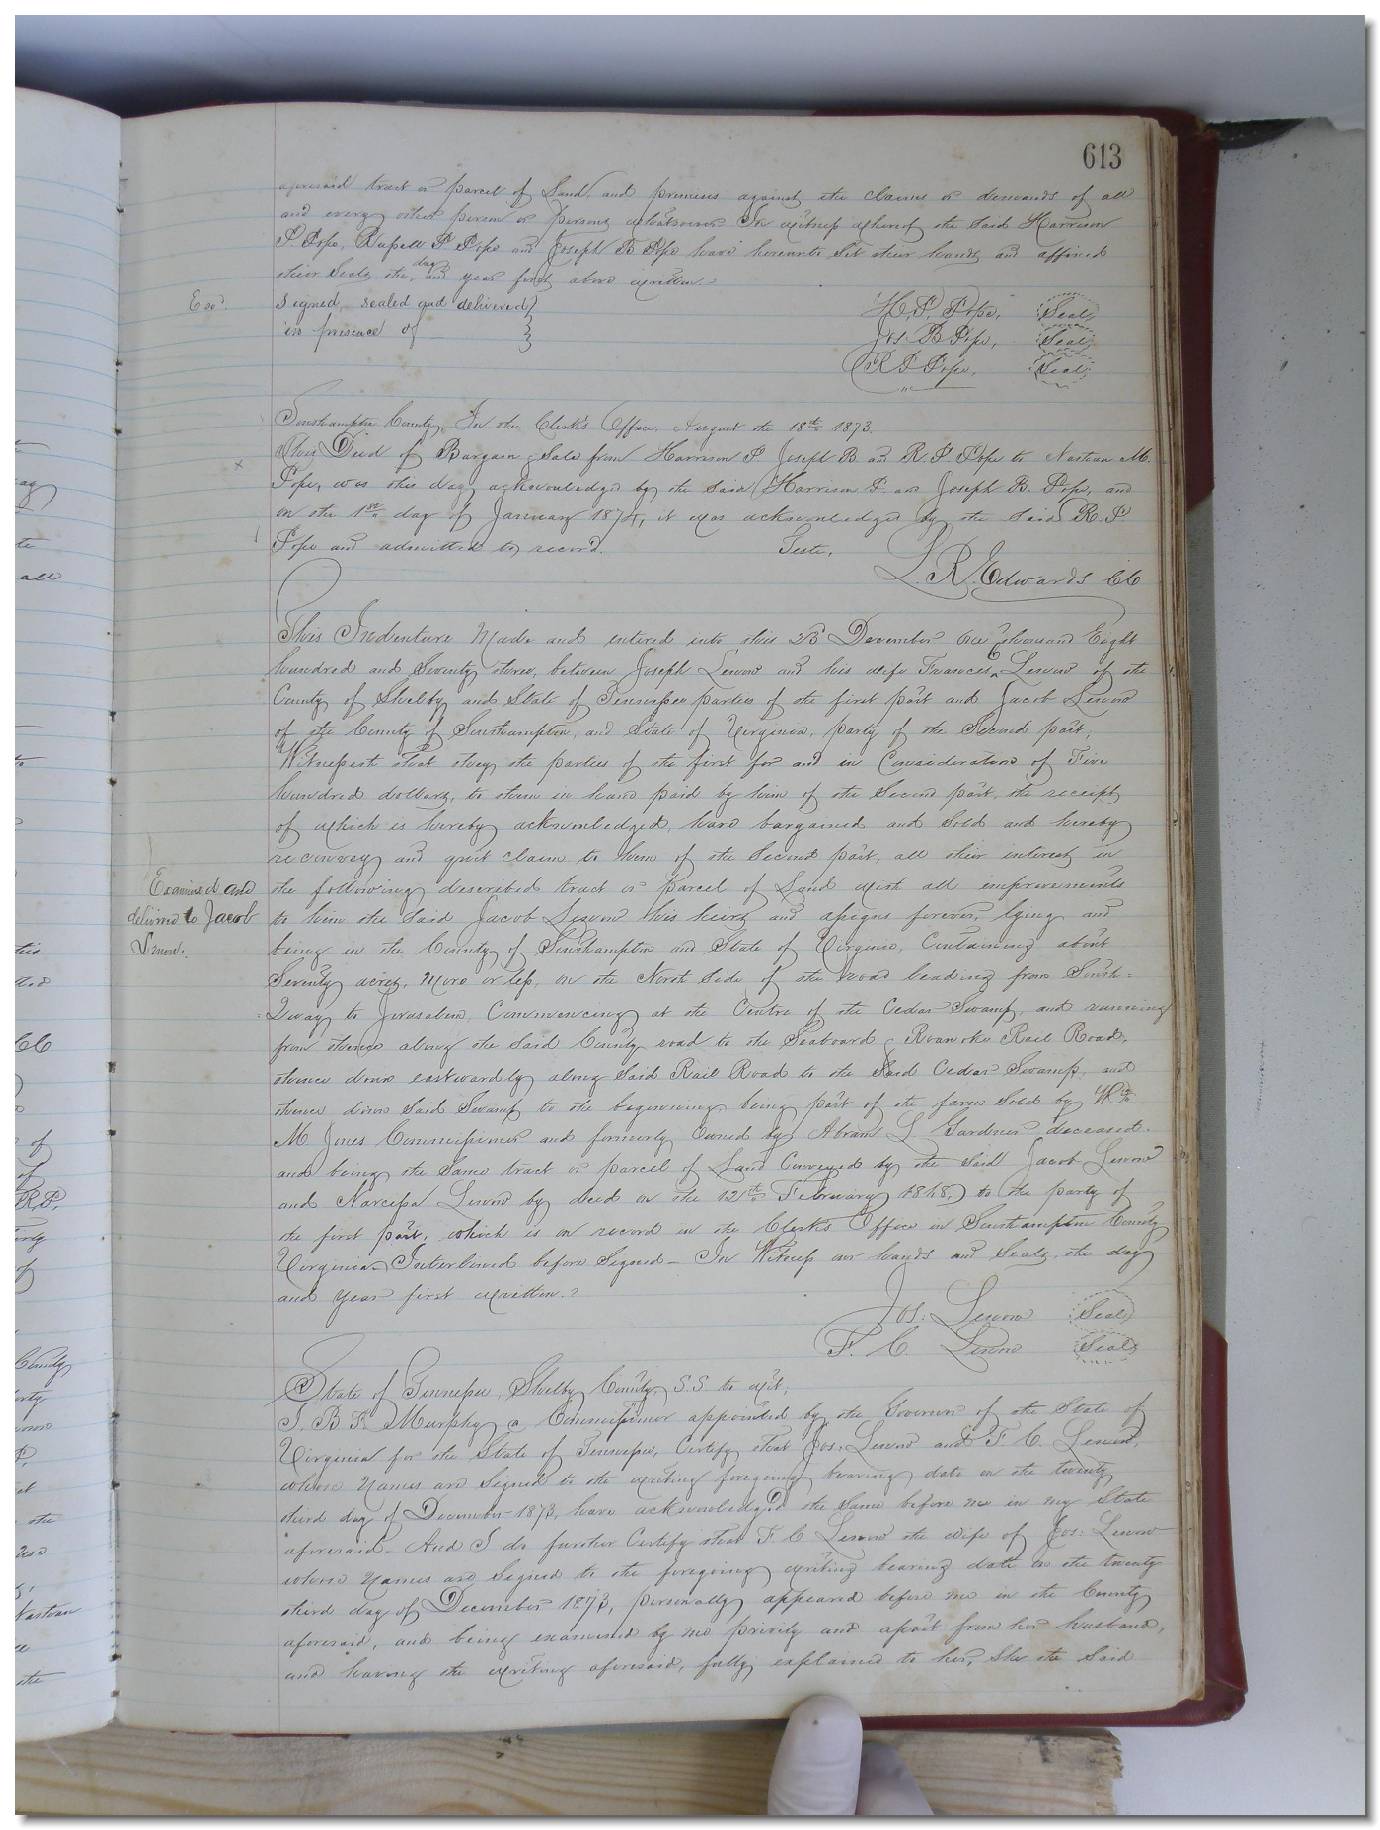 613
aforesaid tract or parcel of Land, and premises against the claims or demands of all
and every other person or persons whatsoever In witness whereof the said Harrison
P Pope, Russell P Pope and Joseph B Pope have hereunto set their hands and affixed
their Seals the day and year first above written.
Exd.
Signed, sealed and delivered }
in presence of }
H. P. Pope, Seal
Jos. B Pope, Seal
R P Pope, Seal
Southampton County, In the Clerk's Office, August the 18th 1873.
This Deed of Bargain & Sale from Harrison P. Joseph B and R. P Pope to Nathan M.
Pope, was this day acknowledged by the said Harrison P. and Joseph B. Pope, and
on the 1st day of January 1874, it was acknowledged by the said R. P.
Pope and admitted to record. Teste,
L. R. Edwards CC
This Indenture Made and entered into this 23 December One thousand Eight
hundred and Seventy three, between Joseph Lewow and his wife Frances C Lewow of the
County of Shelby and State of Tennessee parties of the first part and Jacob Lewow
of the County of Southampton, and State of Virginia, party of the Second part,
Witnesseth that they the parties of the first for and in Consideration of Five
hundred dollars, to them in hand paid by him of the Second part, the receipt
of which is hereby acknowledged, have bargained and Sold and hereby
reconvey and quit claim to him of the Second part, all their interest in
Examined and
delivered to Jacob
the following described tract or parcel of Land with all improvements
to him the Said Jacob Lewow his heirs and assigns forever, lying and
being in the County of Southampton and State of Virginia, Containing about
Seventy acres, More or less, on the North Side of the road leading from South=
Quay to Jerusalem, Commencing at the Centre of the Cedar Swamp, and running
from thence along the Said County road to the Seaboard & Roanoke Rail Road,
thence down eastwardly along Said Rail Road to the Said Cedar Swamp, and
thence down Said Swamp to the beginning being part of the farm Sold by Wm
M Jones Commissioner and formerly Owned by Abram L Gardner deceased.
and being the Same tract or parcel of Land Conveyed by the Said Jacob Lewow
and Narcissa Lewow by deed on the 12th February 1848, to the party of
the first part, which is on record in the Clerks Office in Southampton County
Virginia Interlined before Signed - In Witness our hands and Seals, the day
and year first written.
Jos. Lewow Seal
F. C Lewow Seal
State of Tennessee, Shelby County, S.S. to wit,
I, B F. Murphy a Commissioner appointed by the Governor of the State of
Virginia for the State of Tennessee, Certify that Jos. Lewow and F. C. Lewow,
whose Names are Signed to the writing foregoing bearing date on the twenty
third day of December 1873, have acknowledged the Same before me in my State
aforesaid- And I do further Certify that F. C Lewow the wife of Jos. Lewow
whose Names are Signed to the foregoing writing bearing date on the twenty
third day of December 1873, personally appeared before me in the County
aforesaid, and being examined by me privily and apart from her husband,
and having the writing aforesaid, fully explained to her, She the Said